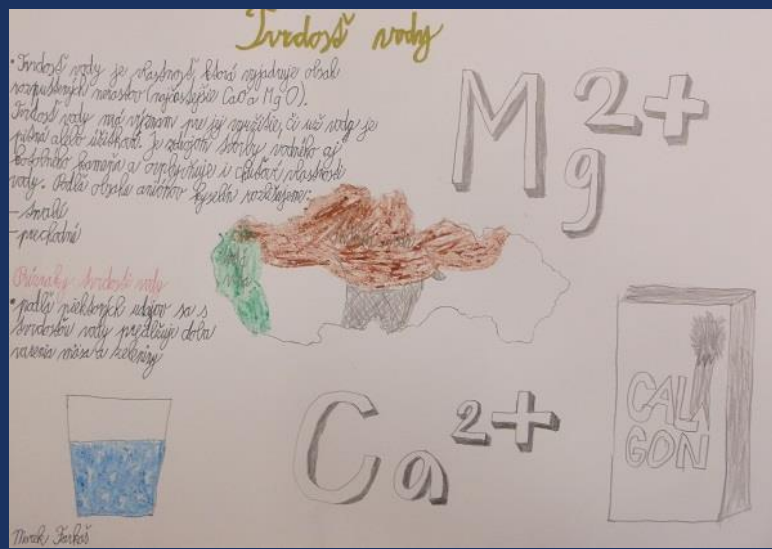 Tvrdosť vody
• Tvrdosť vody je vlastnosť, ktorá vyjadruje obsah
rozpustených nerastov (najčastejšie CaO a MgO).
Tvrdosť vody má význam pre jej využitie, či už vody je
pitná alebo úžitková. Je zdrojom tvorby vodného aj
kotolného kameňa a ovplyvňuje i chuťové vlastnosti
vody. Podľa obsahu aniónov kyselín rozlišujeme:
- trvalú
- prechodnú
Príznaky tvrdosti vody
• podľa niektorých údajov sa s
tvrdosťou vody predlžuje doba
varenia mäsa a zeleniny
Mg2+
Ca2+
CAL
GON
Farkaš